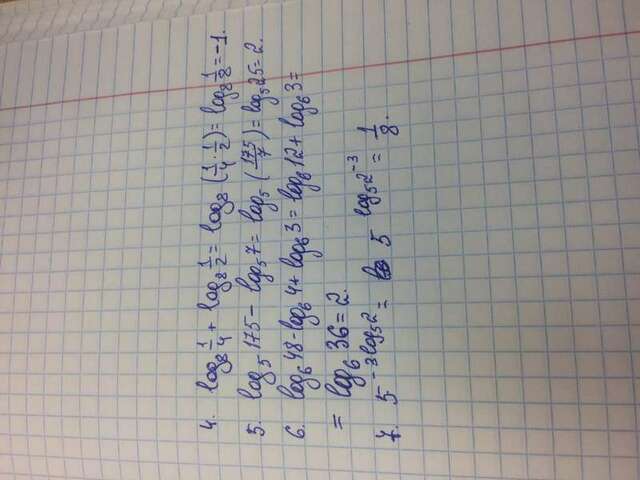 4. log₈ 1/4 + log₈ 1/2 = log₈ (1/4 · 1/2) = log₈ 1/8 = -1.
5. log₅ 175 - log₅ 7 = log₅ (175/7) = log₅ 25 = 2.
6. log₆ 48 - log₆ 4 + log₆ 3 = log₆ 12 + log₆ 3 =
= log₆ 36 = 2.
7. 5^(-3log₅2) = 5^(log₅2^(-3)) = 1/8.